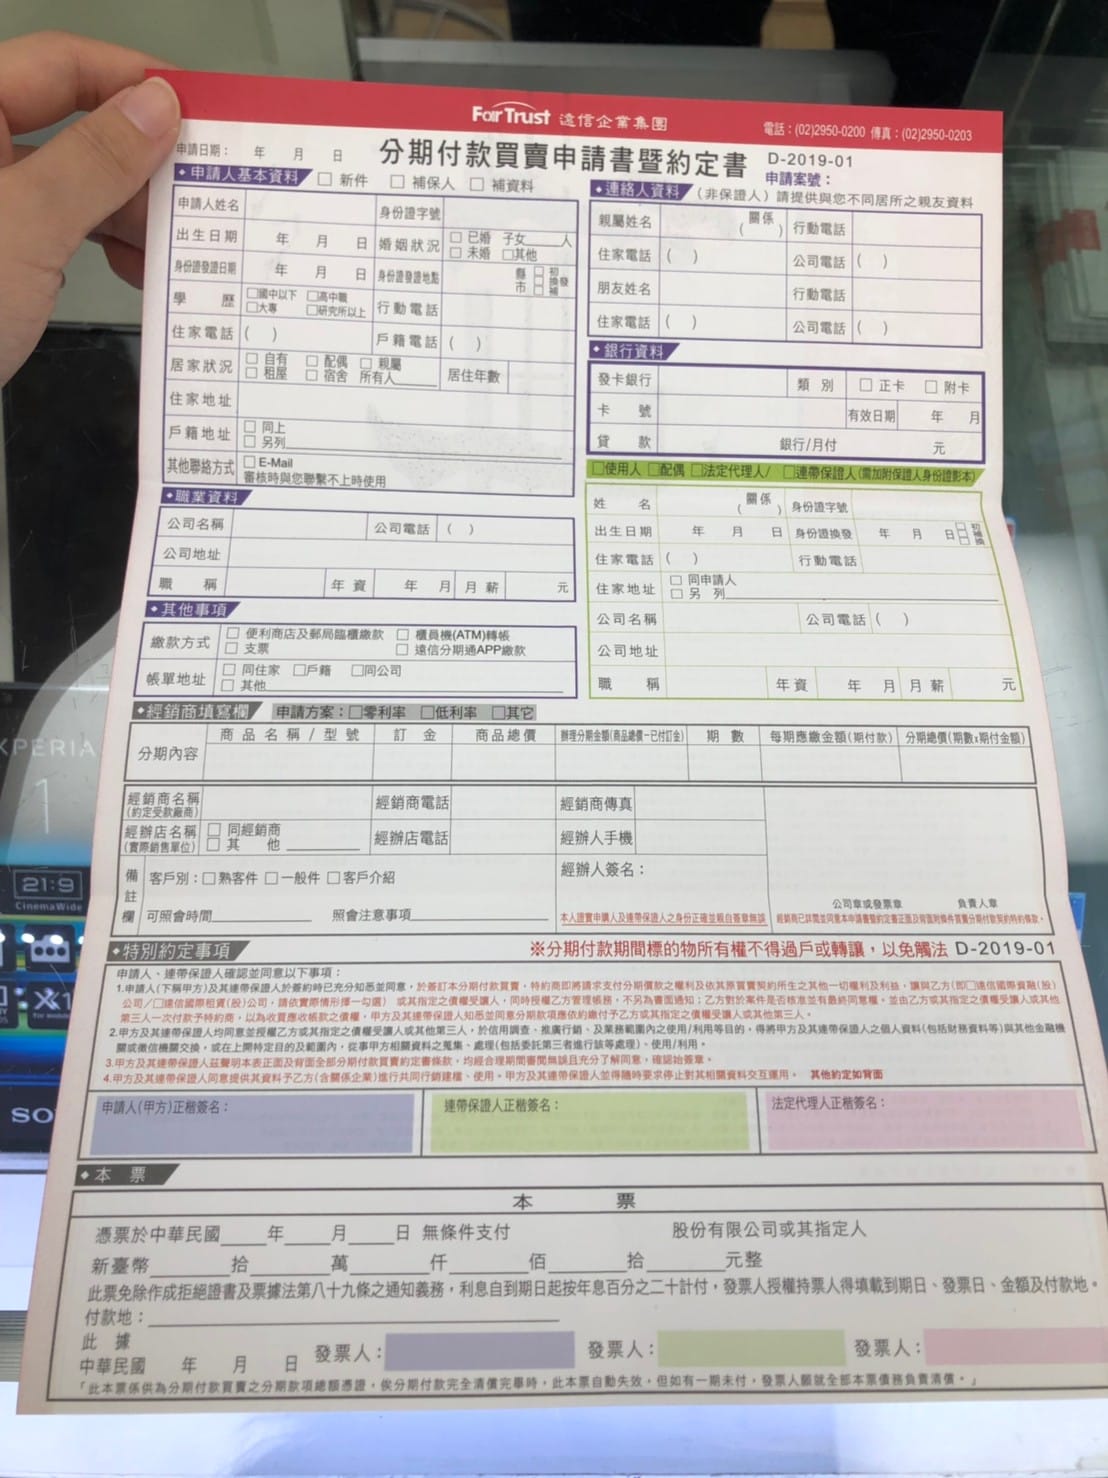 FarTrust 遠信企業集團
電話：(02)2950-0200 傳真：(02)2950-0203
申請日期： 年 月 日
分期付款買賣申請書暨約定書
D-2019-01
申請案號：
◆申請人基本資料 □ 新件 □ 補保人 □ 補資料
申請人姓名 身份證字號
出生日期 年 月 日 婚姻狀況 □ 已婚 子女___人 □ 未婚 □其他
身份證發證日期 年 月 日 身份證發證地點 縣 市 □ 初 □ 換發 □ 補
學 歷 □國中以下 □高中職 □大專 □研究所以上 行動電話
住家電話 ( ) 戶籍電話 ( )
居家狀況 □ 自有 □ 配偶 □ 親屬 □ 租屋 □ 宿舍 所有人____ 居住年數
住家地址
戶籍地址 □ 同上 □ 另列
其他聯絡方式 □ E-Mail
審核時與您聯繫不上時使用
◆連絡人資料 (非保證人) 請提供與您不同居所之親友資料
親屬姓名 (關係 ) 行動電話
住家電話 ( ) 公司電話 ( )
朋友姓名 行動電話
住家電話 ( ) 公司電話 ( )
◆銀行資料
發卡銀行 類 別 □ 正卡 □ 附卡
卡 號 有效日期 年 月
貸 款 銀行/月付 元
□使用人 □配偶 □法定代理人/ □連帶保證人(需加附保證人身份證影本)
姓 名 (關係 ) 身份證字號
出生日期 年 月 日 身份證換發 年 月 日 □初 □補 □換
住家電話 ( ) 行動電話
住家地址 □ 同申請人 □ 另 列
公司名稱 公司電話 ( )
公司地址
職 稱 年資 年 月 月薪 元
◆職業資料
公司名稱 公司電話 ( )
公司地址
職 稱 年資 年 月 月薪 元
◆其他事項
繳款方式 □ 便利商店及郵局臨櫃繳款 □ 櫃員機(ATM)轉帳
□ 支票 □ 遠信分期通APP繳款
帳單地址 □ 同住家 □戶籍 □同公司
□ 其他
◆經銷商填寫欄 申請方案：□零利率 □低利率 □其它
分期內容 商品名稱/型號 訂 金 商品總價 辦理分期金額(商品總價－已付訂金) 期 數 每期應繳金額(期付款) 分期總價(期數x期付金額)
經銷商名稱 (約定受款廠商) 經銷商電話 經銷商傳真
經辦店名稱 (實際銷售單位) □ 同經銷商 □ 其 他 經辦店電話 經辦人手機
備註欄 客戶別：□熟客件 □一般件 □客戶介紹 經辦人簽名：
可照會時間 照會注意事項
本人證實申購人及連帶保證人之身份正確並親自簽章無誤
公司章或發票章 負責人章
經銷商已詳閱並同意本申請書暨約定書正面及背面附條件買賣分期付款契約特約條款。
◆特別約定事項 ※分期付款期間標的物所有權不得過戶或轉讓，以免觸法 D-2019-01
申請人、連帶保證人確認並同意以下事項：
1.申請人(下稱甲方)及其連帶保證人於簽約時已充分知悉並同意，於簽訂本分期付款買賣，特約商即將請求支付分期價款之權利及依其原買賣契約所生之其他一切權利及利益，讓與乙方(即□遠信國際資融(股)
公司／□遠信國際租賃(股)公司，請依實際情形擇一勾選) 或其指定之債權受讓人，同時授權乙方管理帳務，不另為書面通知；乙方對於案件是否核准並有最終同意權，並由乙方或其指定之債權受讓人或其他
第三人一次付款予特約商，以為收買應收帳款之債權，甲方及其連帶保證人知悉並同意分期款項應依約繳付予乙方或其指定之債權受讓人或其他第三人。
2.甲方及其連帶保證人均同意並授權乙方或其指定之債權受讓人或其他第三人，於信用調查、推廣行銷、及業務範圍內之使用/利用等目的，得將甲方及其連帶保證人之個人資料(包括財務資料等)與其他金融機
關或徵信機關交換，或在上開特定目的及範圍內，從事甲方相關資料之蒐集、處理(包括委託第三者進行該等處理)、使用/利用。
3.甲方及其連帶保證人茲聲明本表正面及背面全部分期付款買賣約定書條款，均經合理期間審閱無誤且充分了解同意，確認始簽章。
4.甲方及其連帶保證人同意提供其資料予乙方(含關係企業)進行共同行銷建檔、使用。甲方及其連帶保證人並得隨時要求停止對其相關資料交互運用。 其他約定如背面
申請人(甲方)正楷簽名： 連帶保證人正楷簽名： 法定代理人正楷簽名：
◆本 票
本 票
憑票於中華民國 年 月 日 無條件支付 股份有限公司或其指定人
新臺幣 拾 萬 仟 佰 拾 元整
此票免除作成拒絕證書及票據法第八十九條之通知義務，利息自到期日起按年息百分之二十計付，發票人授權持票人得填載到期日、發票日、金額及付款地。
付款地：
此 據
中華民國 年 月 日 發票人： 發票人： 發票人：
「此本票係供為分期付款買賣之分期款項總額憑證，俟分期付款完全清償完畢時，此本票自動失效，但如有一期未付，發票人願就全部本票債務負責清償。」
XPERIA
1
21:9
CinemaWide
SO